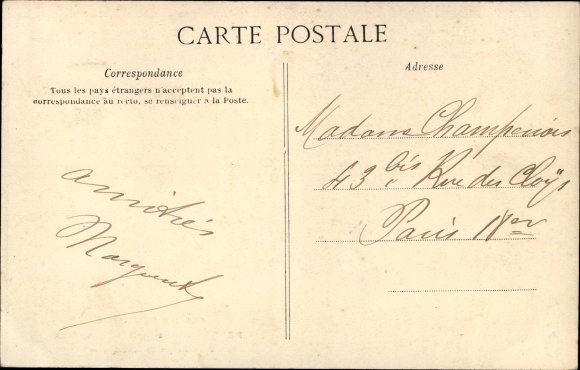 CARTE POSTALE
Correspondance
Tous les pays étrangers n'acceptent pas la
correspondance au recto, se renseigner à la Poste.
amitiés
Marguerite
Adresse
Madame Champenois
43 bis Rue des Cloÿs
Paris 18er